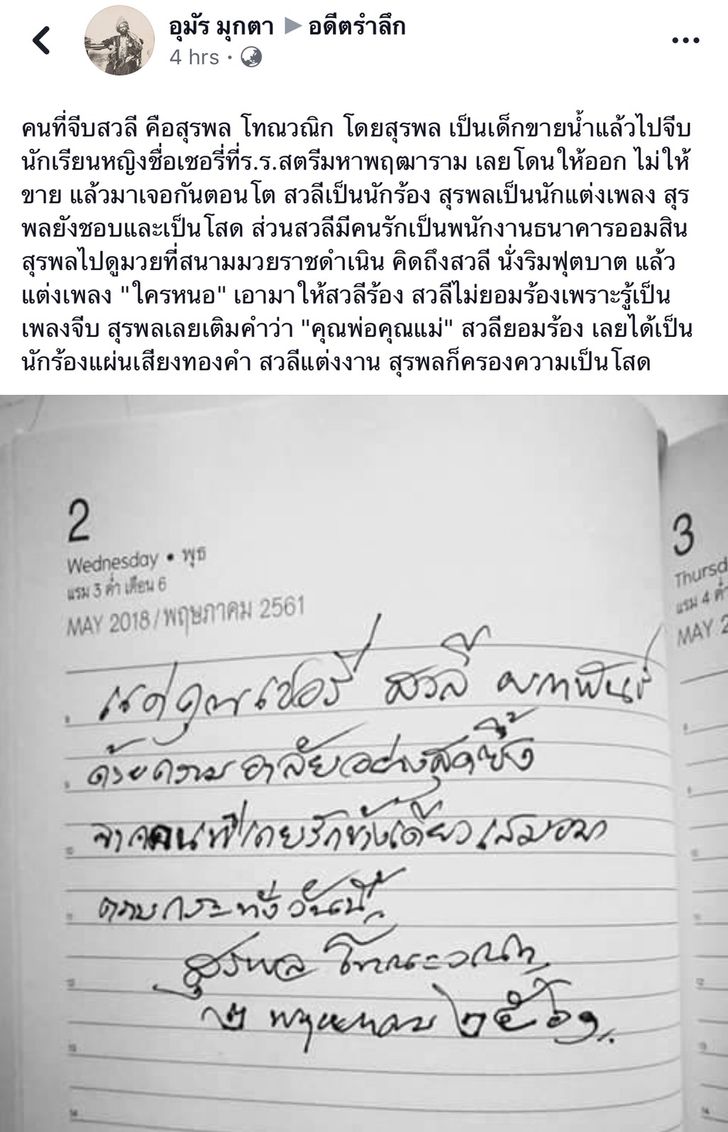 อุมัร มุกตา ▶ อดีตรำลึก
4 hrs ·
คนที่จีบสวลี คือสุรพล โทณวณิก โดยสุรพล เป็นเด็กขายน้ำแล้วไปจีบ
นักเรียนหญิงชื่อเชอรี่ที่ร.ร.สตรีมหาพฤฒาราม เลยโดนให้ออก ไม่ให้
ขาย แล้วมาเจอกันตอนโต สวลีเป็นนักร้อง สุรพลเป็นนักแต่งเพลง สุร
พลยังชอบและเป็นโสด ส่วนสวลีมีคนรักเป็นพนักงานธนาคารออมสิน
สุรพลไปดูมวยที่สนามมวยราชดำเนิน คิดถึงสวลี นั่งริมฟุตบาต แล้ว
แต่งเพลง "ใครหนอ" เอามาให้สวลีร้อง สวลีไม่ยอมร้องเพราะรู้เป็น
เพลงจีบ สุรพลเลยเติมคำว่า "คุณพ่อคุณแม่" สวลียอมร้อง เลยได้เป็น
นักร้องแผ่นเสียงทองคำ สวลีแต่งงาน สุรพลก็ครองความเป็นโสด
2
Wednesday • พุธ
แรม 3 ค่ำ เดือน 6
MAY 2018/พฤษภาคม 2561
แด่คุณเชอรี่ สวลี ผกาพันธุ์
ด้วยความอาลัยอย่างสุดซึ้ง
จากคนที่เคยรักข้างเดียวเสมอมา
ตราบกระทั่งวันนี้
สุรพล โทณะวณิก
๒ พฤษภาคม ๒๕๖๑
3
Thursd
แรม 4 ค่ำ
MAY 2